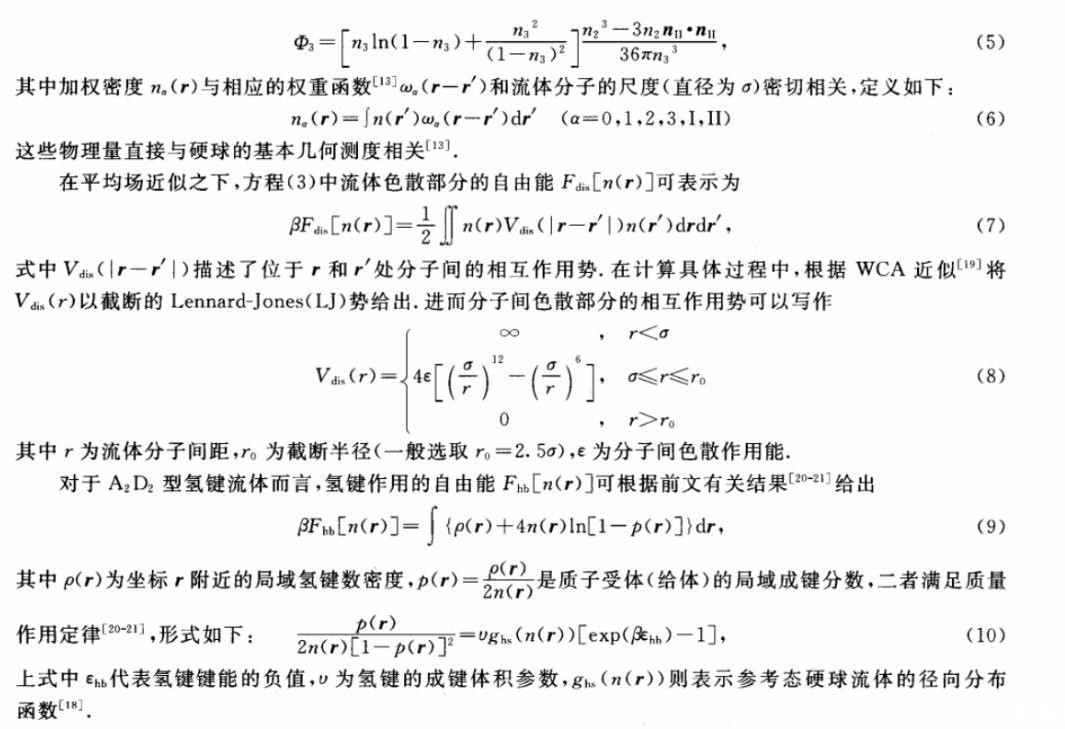 Φ₃=[n₃ln(1−n₃)+n₃²/(1−n₃)²](n₂³−3n₂nII•nII)/(36πn₃³), (5)
其中加权密度 nα(r)与相应的权重函数[13]ωα(r−r′)和流体分子的尺度(直径为σ)密切相关,定义如下:
nα(r)=∫n(r′)ωα(r−r′)dr′ (α=0,1,2,3,I,II) (6)
这些物理量直接与硬球的基本几何测度相关[13].
在平均场近似之下,方程(3)中流体色散部分的自由能 Fdis[n(r)]可表示为
βFdis[n(r)]=1/2∬n(r)Vdis(|r−r′|)n(r′)drdr′, (7)
式中 Vdis(|r−r′|)描述了位于 r 和 r′处分子间的相互作用势.在计算具体过程中,根据 WCA 近似[19]将
Vdis(r)以截断的 Lennard-Jones(LJ)势给出.进而分子间色散部分的相互作用势可以写作
∞ , r<σ
Vdis(r)={4ε[(σ/r)¹²−(σ/r)⁶], σ≤r≤r₀ (8)
0 , r>r₀
其中 r 为流体分子间距,r₀ 为截断半径(一般选取 r₀=2.5σ),ε 为分子间色散作用能.
对于 A₂D₂ 型氢键流体而言,氢键作用的自由能 Fhb[n(r)]可根据前文有关结果[20-21]给出
βFhb[n(r)]=∫{ρ(r)+4n(r)ln[1−p(r)]}dr, (9)
其中 ρ(r)为坐标 r 附近的局域氢键数密度,p(r)=ρ(r)/2n(r)是质子受体(给体)的局域成键分数,二者满足质量
作用定律[20-21],形式如下: p(r)/2n(r)[1−p(r)]²=υghs(n(r))[exp(βεhb)−1], (10)
上式中 εhb代表氢键键能的负值,υ 为氢键的成键体积参数,ghs(n(r))则表示参考态硬球流体的径向分布
函数[18].